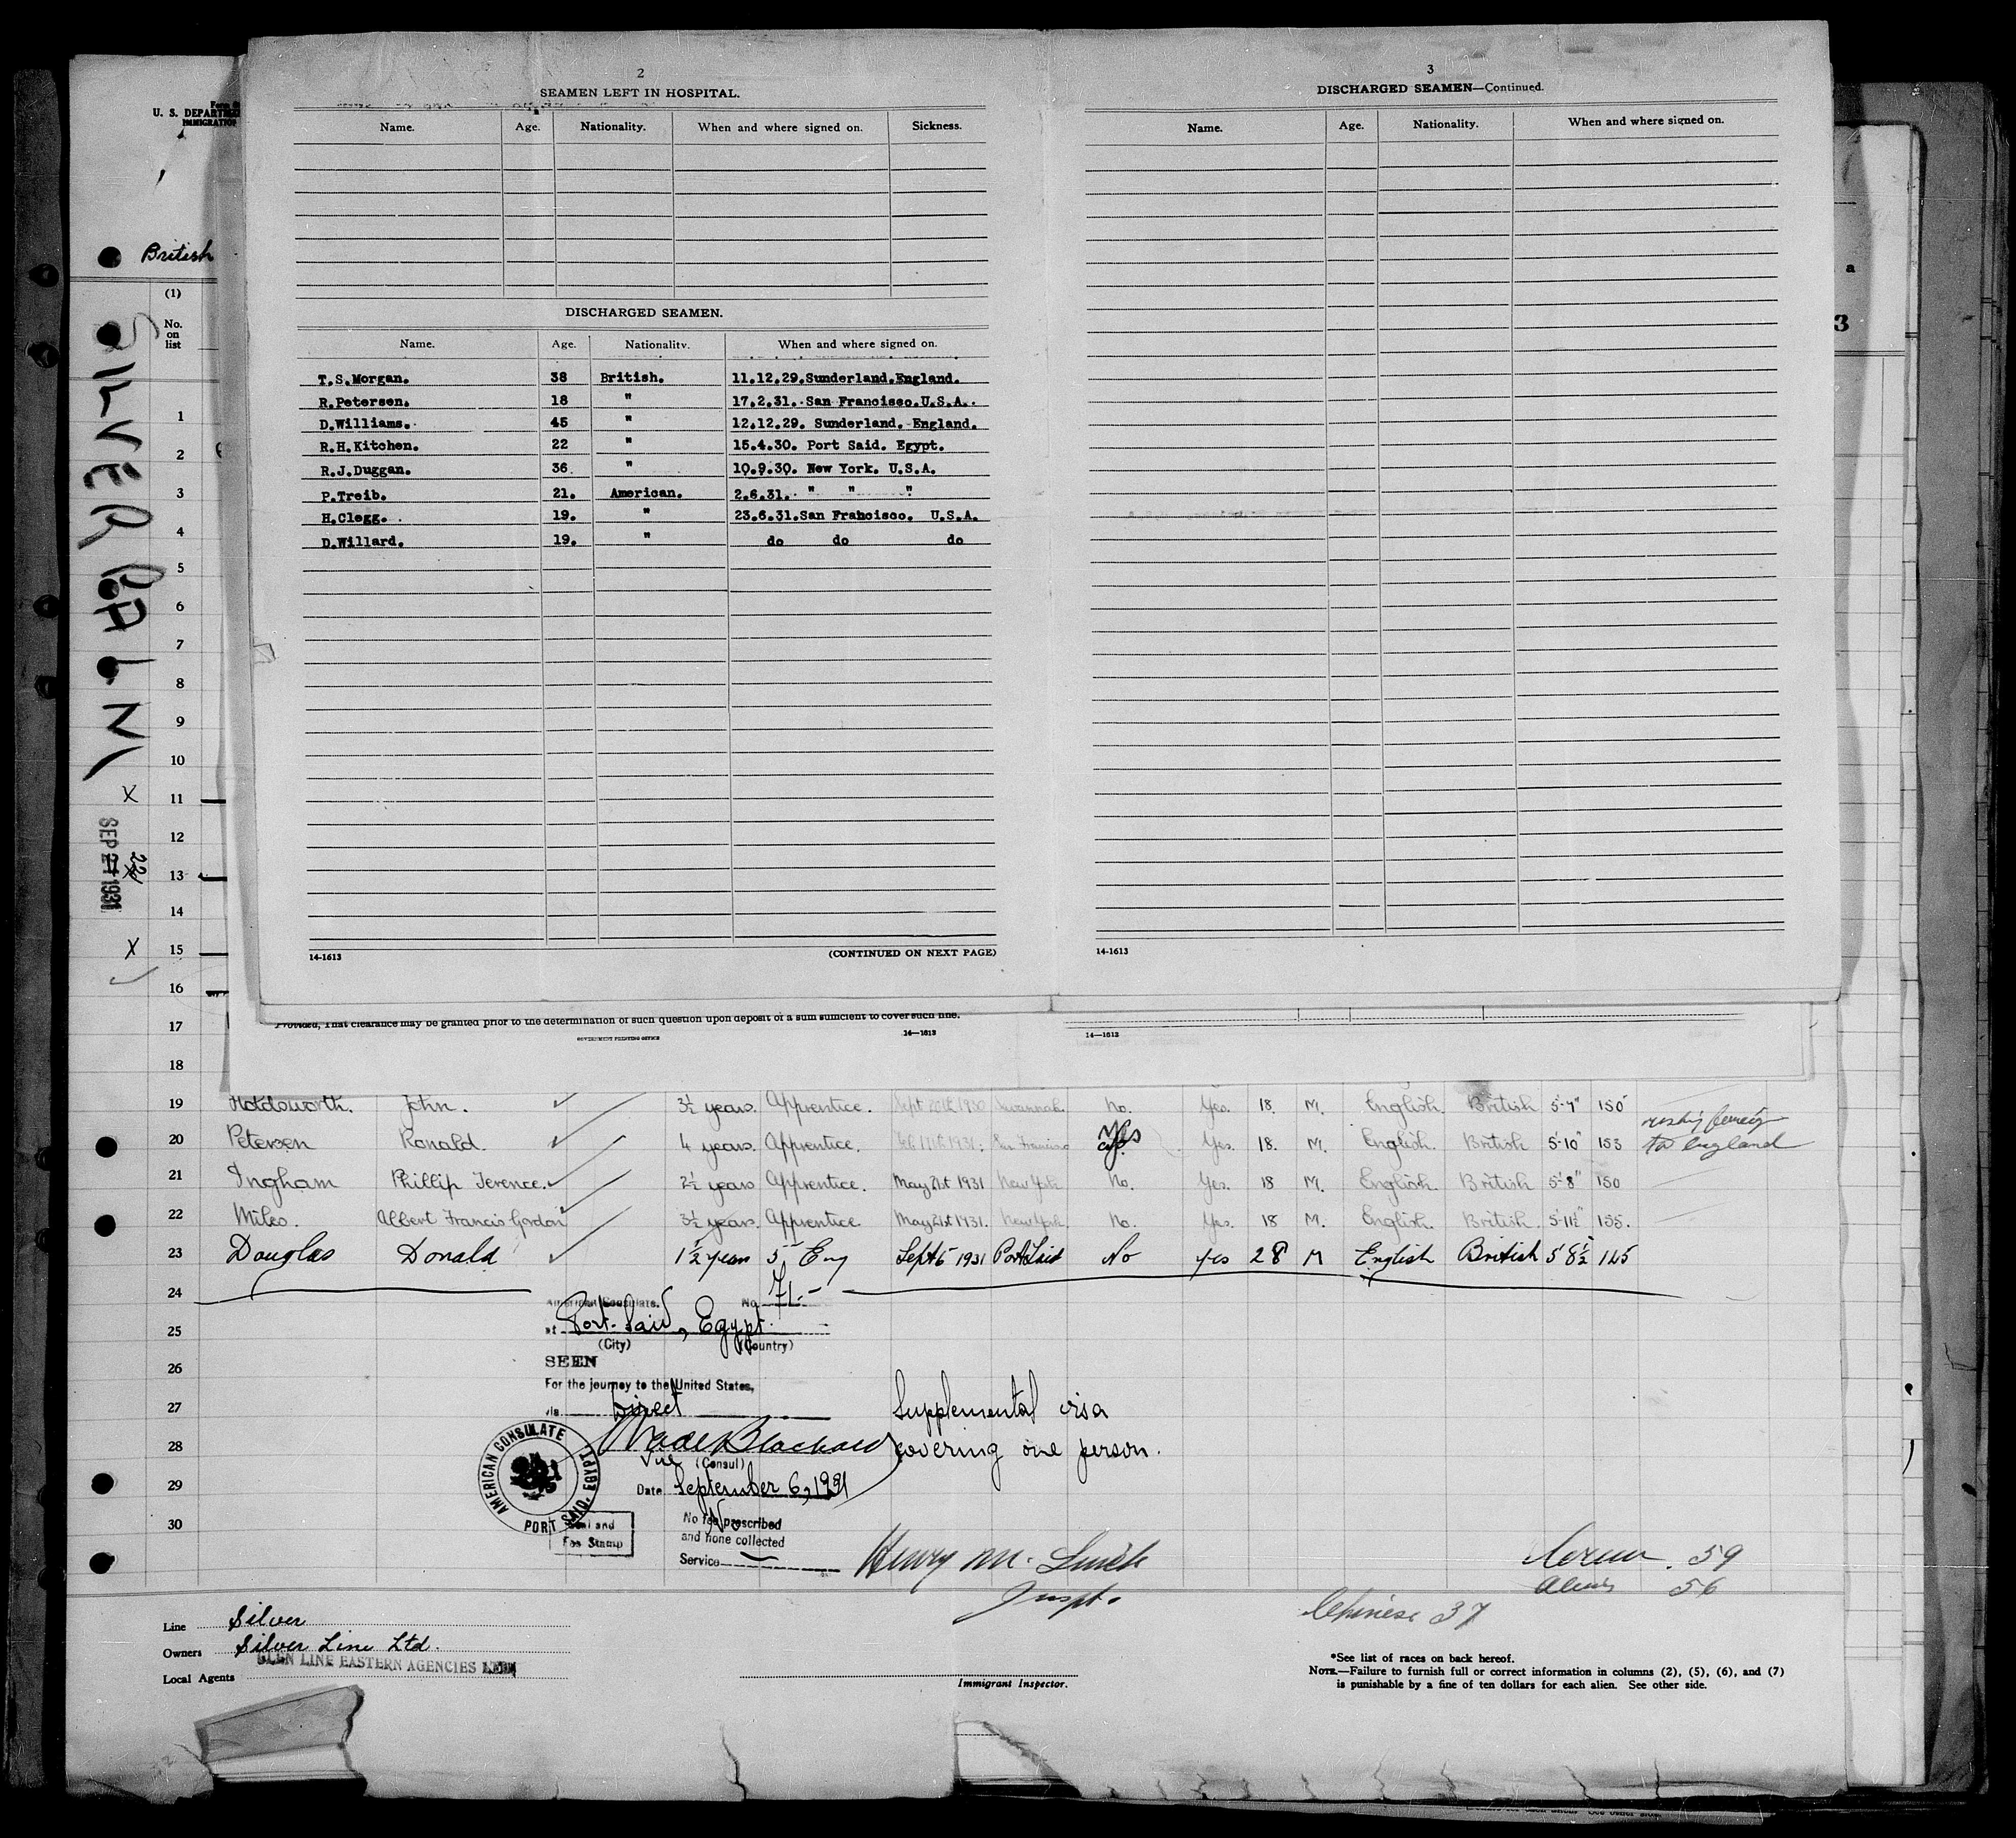 2
SEAMEN LEFT IN HOSPITAL.
Name. Age. Nationality. When and where signed on. Sickness.
DISCHARGED SEAMEN.
Name. Age. Nationality. When and where signed on.
T.S.Morgan. 38 British. 11.12.29.Sunderland.England.
R.Petersen. 18 " 17.2.31. San Francisco.U.S.A.
D.Williams. 45 " 12.12.29. Sunderland. England.
R.H.Kitchen. 22 " 15.4.30. Port Said. Egypt.
R.J.Duggan. 36. " 10.9.30. New York. U.S.A.
P.Treib. 21. American. 2.6.31. " " "
H.Clegg. 19. " 23.6.31.San Francisco. U.S.A.
D.Willard. 19. " do do do
14-1613 (CONTINUED ON NEXT PAGE)
3
DISCHARGED SEAMEN—Continued.
Name. Age. Nationality. When and where signed on.
14-1613
U. S. DEPARTMENT
IMMIGRATION
British
(1)
No.
on
list
SILVERPALM
SEP 21 1931
22
1
2
3
4
5
6
7
8
9
10
X 11
12
X 13
14
X 15
16
17
18
Provided, That clearance may be granted prior to the determination of such question upon deposit of a sum sufficient to cover such fine.
GOVERNMENT PRINTING OFFICE 14—1613
14—1613
19 Holdsworth. John. 3½ years. Apprentice. Sept 20th 1930 Savannah. No. Yes. 18. M. English. British 5-7" 150
20 Petersen Ronald. 4 years. Apprentice. Feb 17th 1931. San Francisco Yes Yes. 18. M. English. British 5-10" 153
to England
21 Ingham Phillip Terence. 2½ years Apprentice. May 21st 1931 New York No. Yes. 18 M. English. British 5-8" 150
22 Miles. Albert Francis Gordon 3½ years. Apprentice May 21st 1931. New York. No. Yes. 18 M. English. British. 5-11½" 155.
23 Douglas Donald 1½ year 5th Eng Sept 6 1931 Port Said No yes 28 M English British 5 8½ 145
24
American Consulate. No. 71.-
25
at Port Said, Egypt.
(City) (Country)
26
SEEN
For the journey to the United States,
27
via Direct
Supplemental visa
28
covering one person.
Vice (Consul)
29
Date September 6, 1931
30
No fee prescribed
and none collected
Service
Seal and
Fee Stamp
AMERICAN CONSULATE PORT SAID, EGYPT
Henry M.
Inspt.
59
Aliens 56
Chinese 37
Line Silver
Owners Silver Line Ltd.
GLEN LINE EASTERN AGENCIES LTD
Local Agents
Immigrant Inspector.
*See list of races on back hereof.
NOTE.—Failure to furnish full or correct information in columns (2), (5), (6), and (7)
is punishable by a fine of ten dollars for each alien. See other side.
a
3